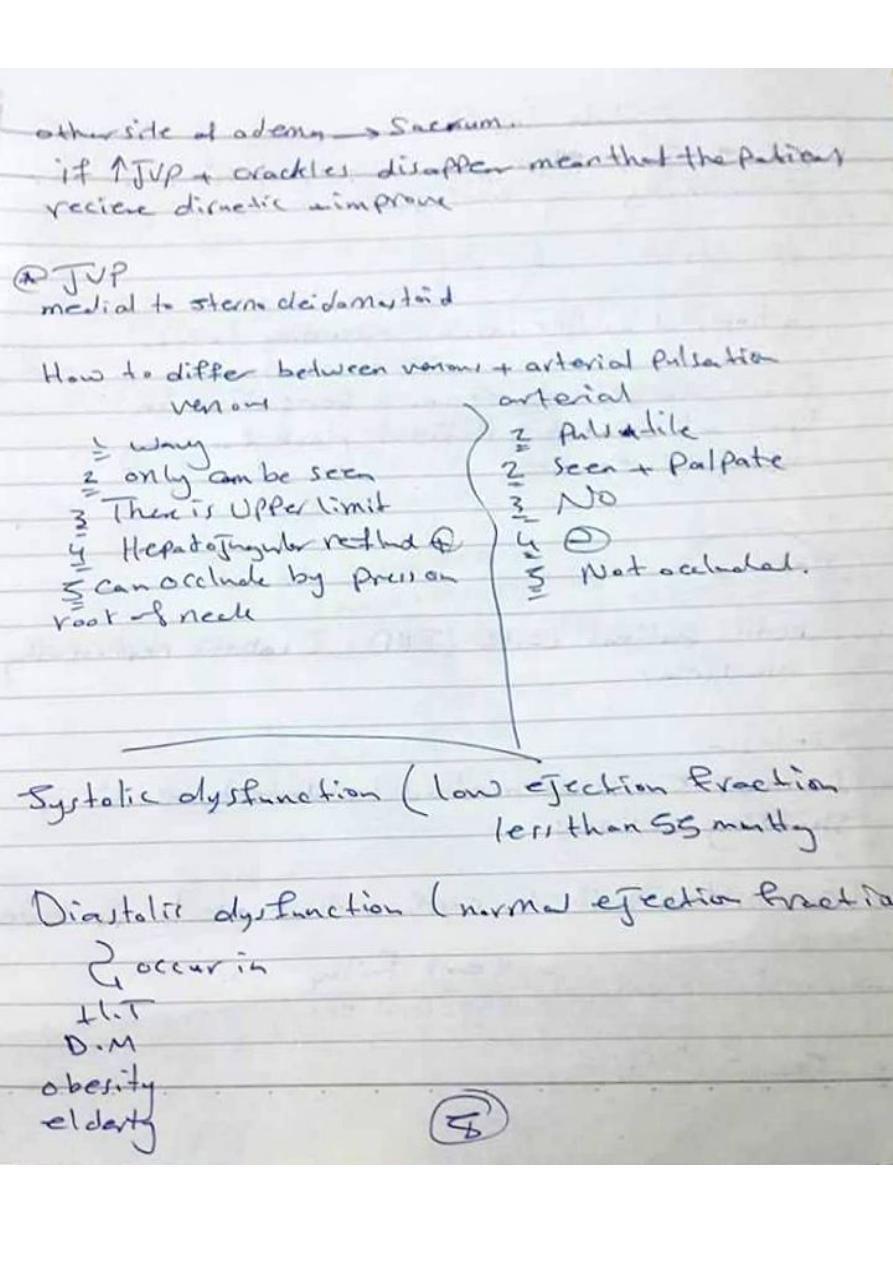 other side of adema → Sacrum.
if ↑JVP + crackles disapper mean that the patient
recieve diruetic → improve
* JVP
medial to sterno cleidomastoid
How to differ between venous + arterial Pulsation
venous
1 wavy
2 only can be seen
3 There is Upper limit
4 Hepatojugular reflud +
5 can occlude by press on
root of neck
arterial
2 Pulsatile
2 Seen + Palpate
3 No
4 -
5 Not occluded.
Systolic dysfunction (low ejection fraction
less than 55 mmHg
Diastolic dysfunction (normal ejection fractio
↳ occur in
H.T
D.M
obesity
elderly
8